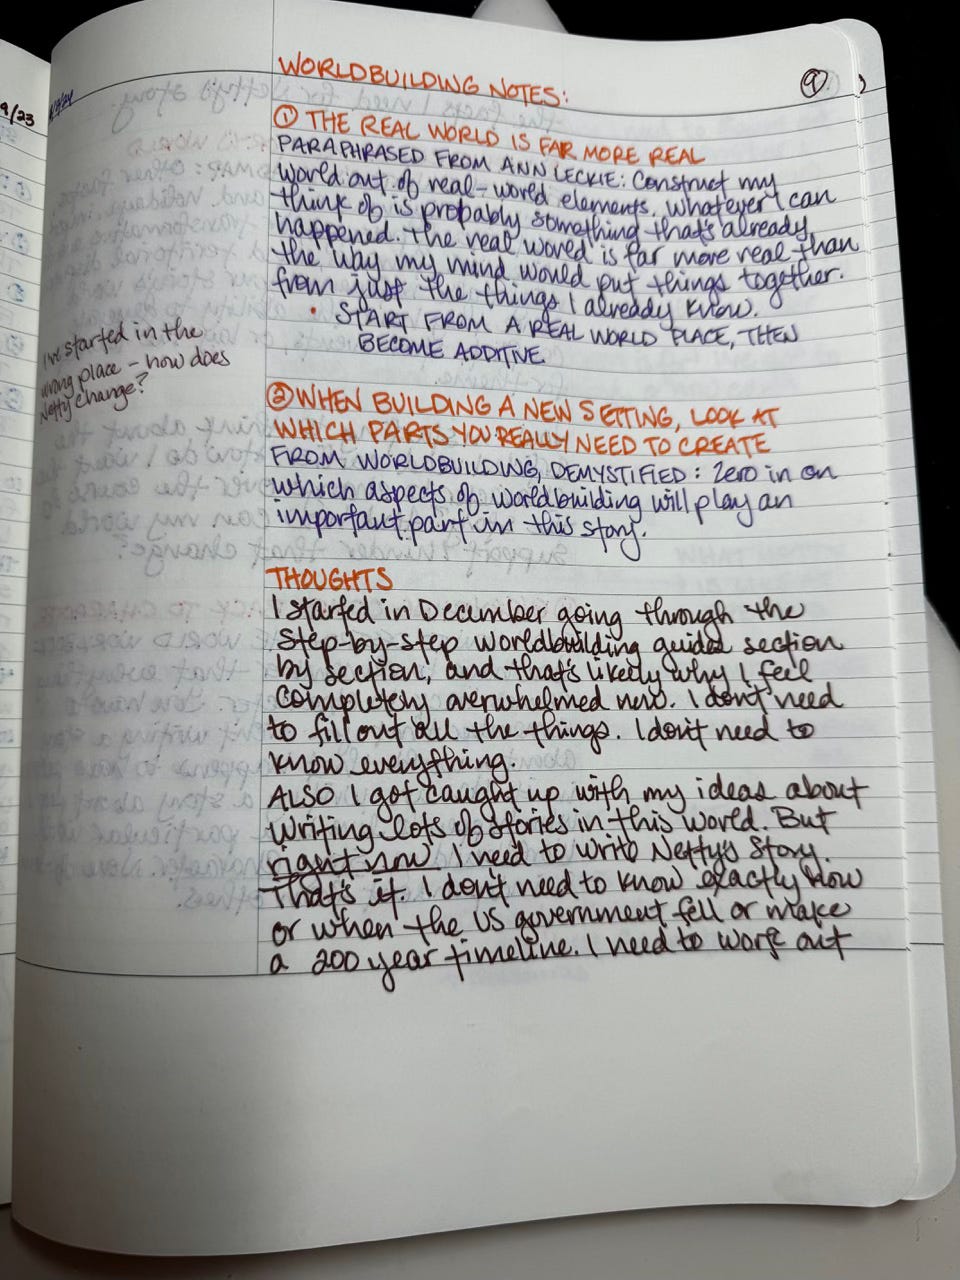 WORLDBUILDING NOTES:
9
9/23
① THE REAL WORLD IS FAR MORE REAL
PARAPHRASED FROM ANN LECKIE: Construct my
world out of real-world elements. Whatever I can
think of is probably something that's already
happened. The real world is far more real than
the way my mind would put things together.
from just the things I already know.
• START FROM A REAL WORLD PLACE, THEN
BECOME ADDITIVE.
I've started in the
wrong place - how does
Netty change?
② WHEN BUILDING A NEW SETTING, LOOK AT
WHICH PARTS YOU REALLY NEED TO CREATE
FROM WORLDBUILDING, DEMYSTIFIED: Zero in on
which aspects of worldbuilding will play an
important part in this story.
THOUGHTS
I started in December going through the
step-by-step worldbuilding guided section
by section, and that's likely why I feel
completely overwhelmed now. I don't need
to fill out all the things. I don't need to
know everything.
ALSO I got caught up with my ideas about
writing lots of stories in this world. But
right now I need to write Netty's Story.
That's it. I don't need to know exactly how
or when the US government fell or make
a 200 year timeline. I need to work out